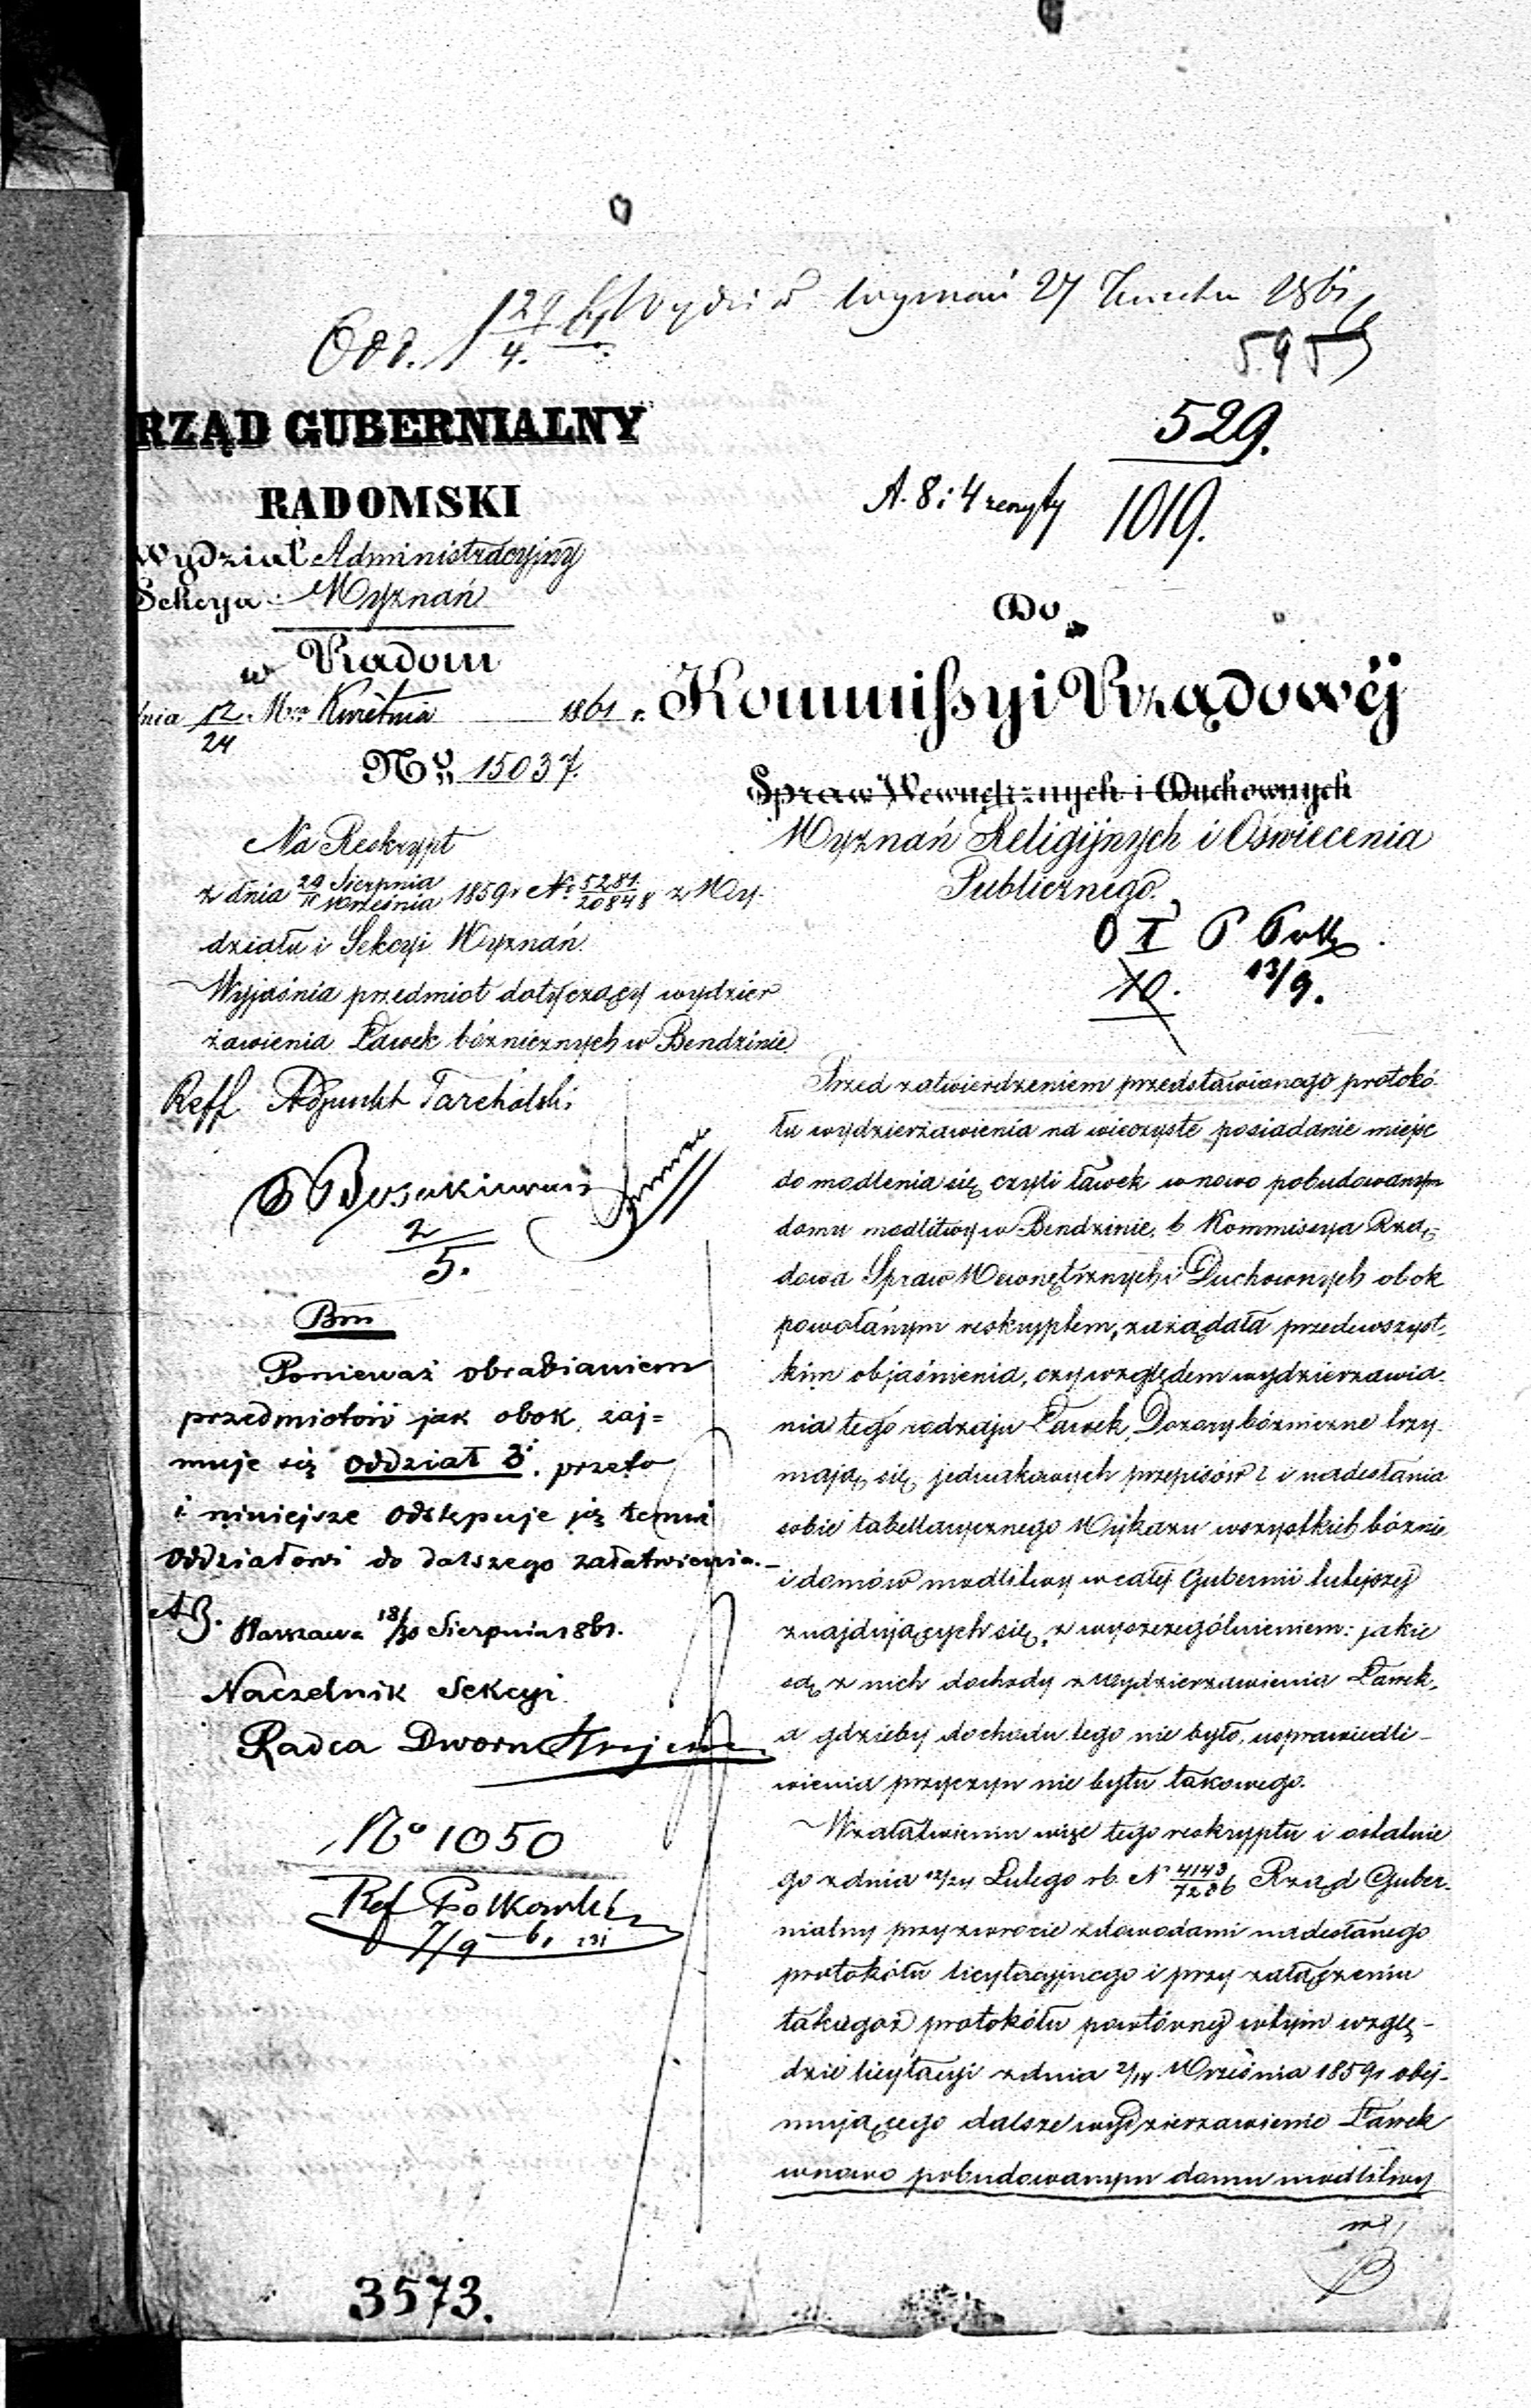 Odd. 1 29/4 61
Wydział Wyznań 27 Kwietnia 1861
595
529.
A. 8 i 4 zeszyty 1019.
RZĄD GUBERNIALNY
RADOMSKI
Wydział Administracyjny
Sekcya Wyznań
w Radom
nia 12/24 Mca Kwietnia 1861 r.
No 15037.
Na Reskrypt
z dnia 29 Sierpnia / 11 Września 1859 r No 5281/20848 z Wy-
działu i Sekcyi Wyznań
Wyjaśnia przedmiot dotyczący wydzier
żawienia Ławek bóżnicznych w Bendzinie
Reff Adjunkt Tarchalski
2/5.
Bm
Ponieważ obrabianiem
przedmiotów jak obok, zaj=
muje się Oddział 3, przeto
i niniejsze odstępuje się temuż
Oddziałowi do dalszego załatwienia.
Warszawa 18/30 Sierpnia 1861.
Naczelnik Sekcyi
Radca Dworu
No 1050
Ref
7/9 61
3573.
Do
Kommissyi Rządowéj
Spraw Wewnętrznych i Duchownych
Wyznań Religijnych i Oświecenia
Publicznego
O I
10. 13/9.
Przed zatwierdzeniem przedstawionego protokó-
łu wydzierżawienia na wieczyste posiadanie miejsc
do modlenia się czyli ławek w nowo pobudowanym
domu modlitwy w Bendzinie, b Kommissya Rzą-
dowa Spraw Wewnętrznych i Duchownych obok
powołanym reskryptem, zażądała przedewszyst-
kim objaśnienia, czy względem wydzierżawia-
nia tego rodzaju Ławek, Dozory bóżniczne trzy-
mają się jednakowych przepisów? i nadesłania
sobie tabellarycznego Wykazu wszystkich bóżnic
i domów modlitwy w całej Gubernii tutejszej
znajdujących się, z wyszczególnieniem: jakie
są z nich dochody z wydzierżawienia Ławek,
a gdzieby dochodu tego nie było, usprawiedli-
wienia przyczyn nie bytu takowego.
W załatwieniu więc tego reskryptu i ostatnie
go z dnia 12/24 Lutego rb. N 4143/7286 Rząd Guber-
nialny przy zwrocie z dowodami nadesłanego
protokółu licytacyjnego i przy załączeniu
takiegoż protokółu powtórnej w tym wzglę-
dzie licytacyi z dnia 2/14 Września 1859 r obej-
mującego dalsze wydzierżawienie Ławek
w nowo pobudowanym domu modlitwy